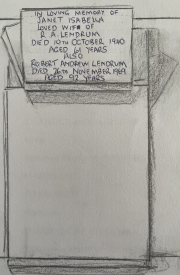 IN LOVING MEMORY OF
JANET ISABELLA
LOVED WIFE OF
R.A. LENDRUM
DIED 10TH OCTOBER 1940
AGED 61 YEARS
ALSO
ROBERT ANDREW LENDRUM
DIED 26TH NOVEMBER 1969
AGED 92 YEARS